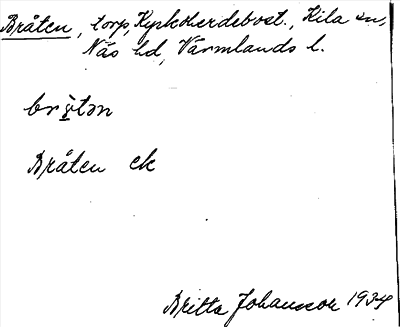 Bråten, torp, Kyrkoherdebost., Kila sn,
Näs hd, Värmlands l.
Bråten ek
Britta Johansson 1934